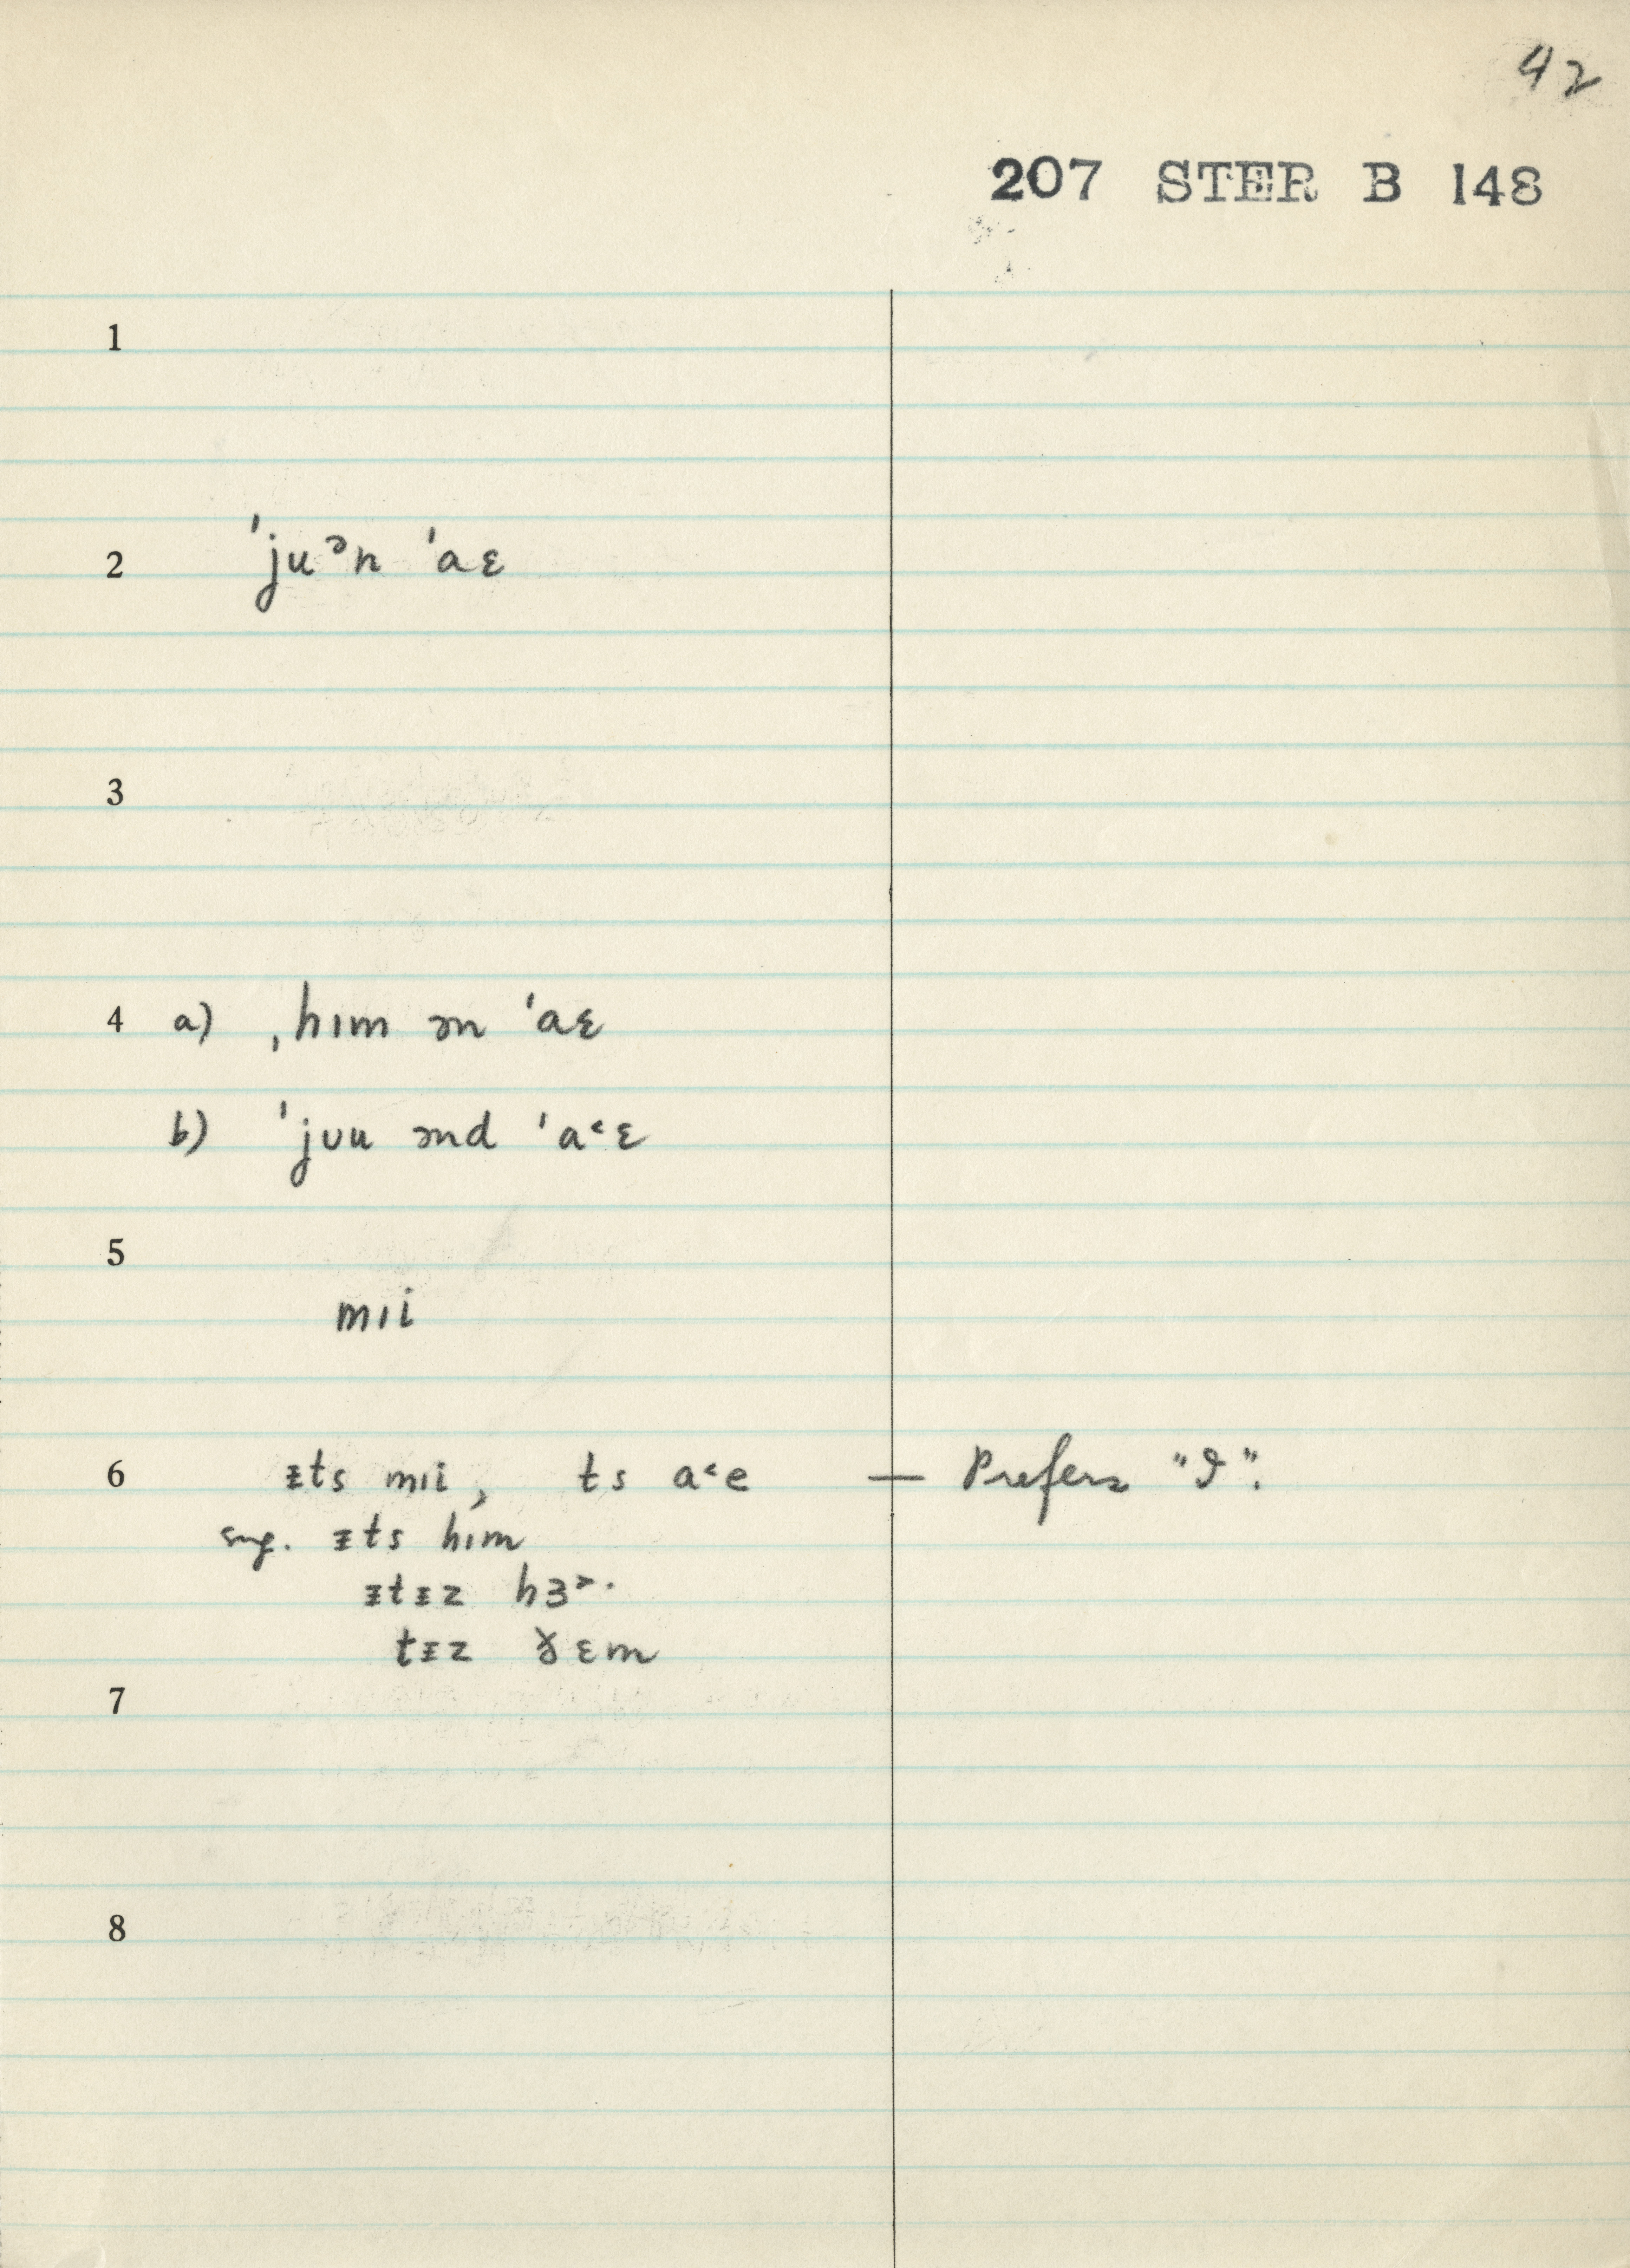 42
207 STER B 148
1
2 ˈjuᵊn ˈaɛ
3
4 a) ˌhɪm ən ˈaɛ
b) ˈjʊu ənd ˈa˂ɛ
5
mɪi
6 ᵻts mɪi, ts a˂e — Prefers "I".
sug. ᵻts hɪm
ᵻtᵻz hɜ˃·
tᵻz ɣ̵ɛm
7
8